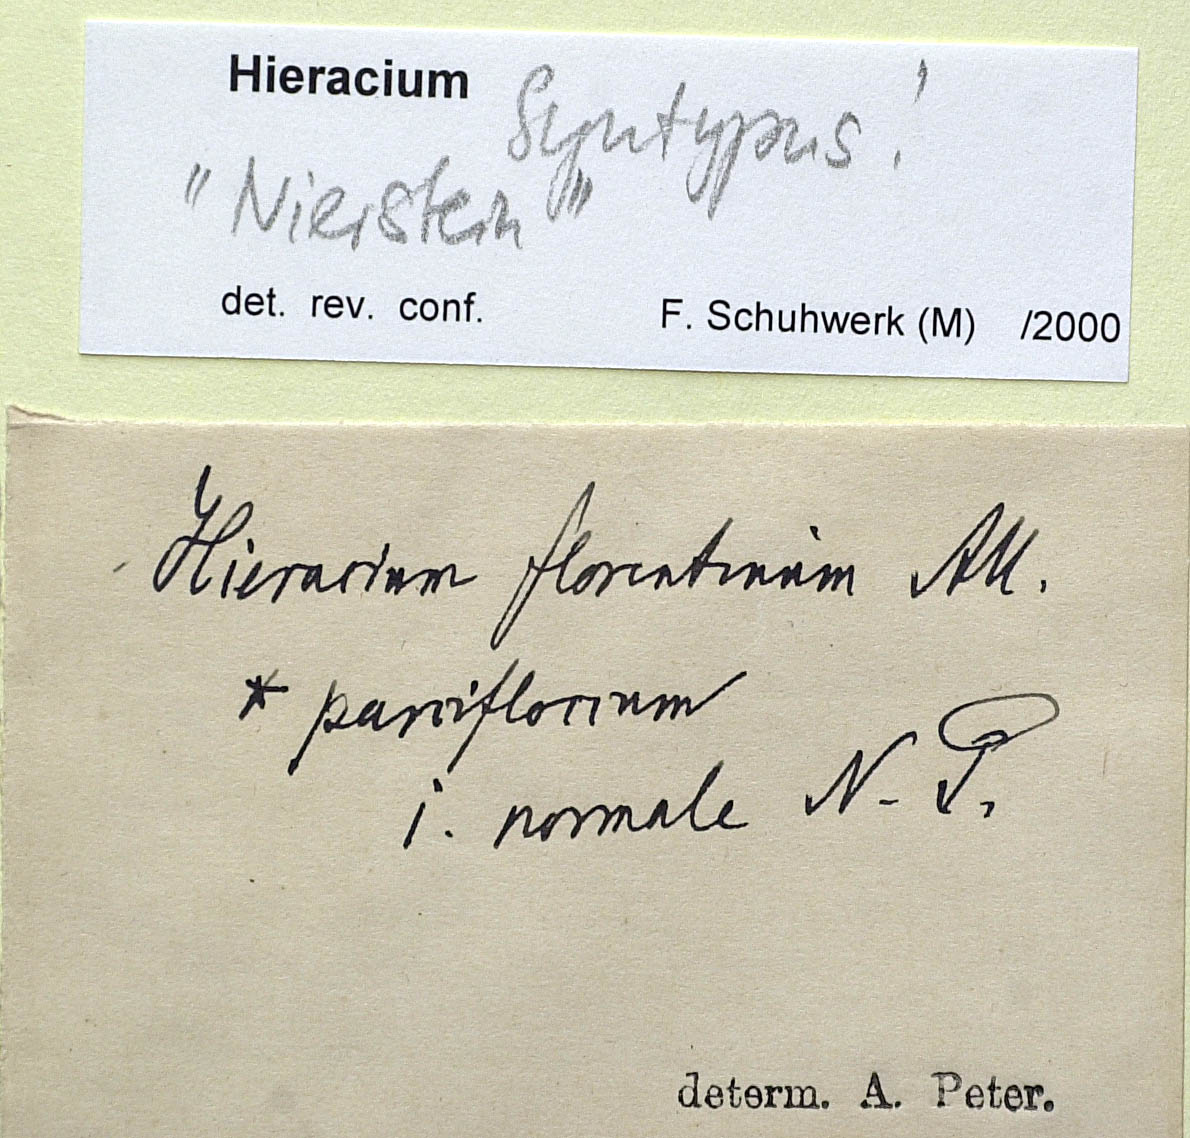 Hieracium Syntypus!
"Nierstein"
det. rev. conf. F. Schuhwerk (M) /2000
Hieracium florentinum All.
* parviflorum
i. normale N. P.
determ. A. Peter.